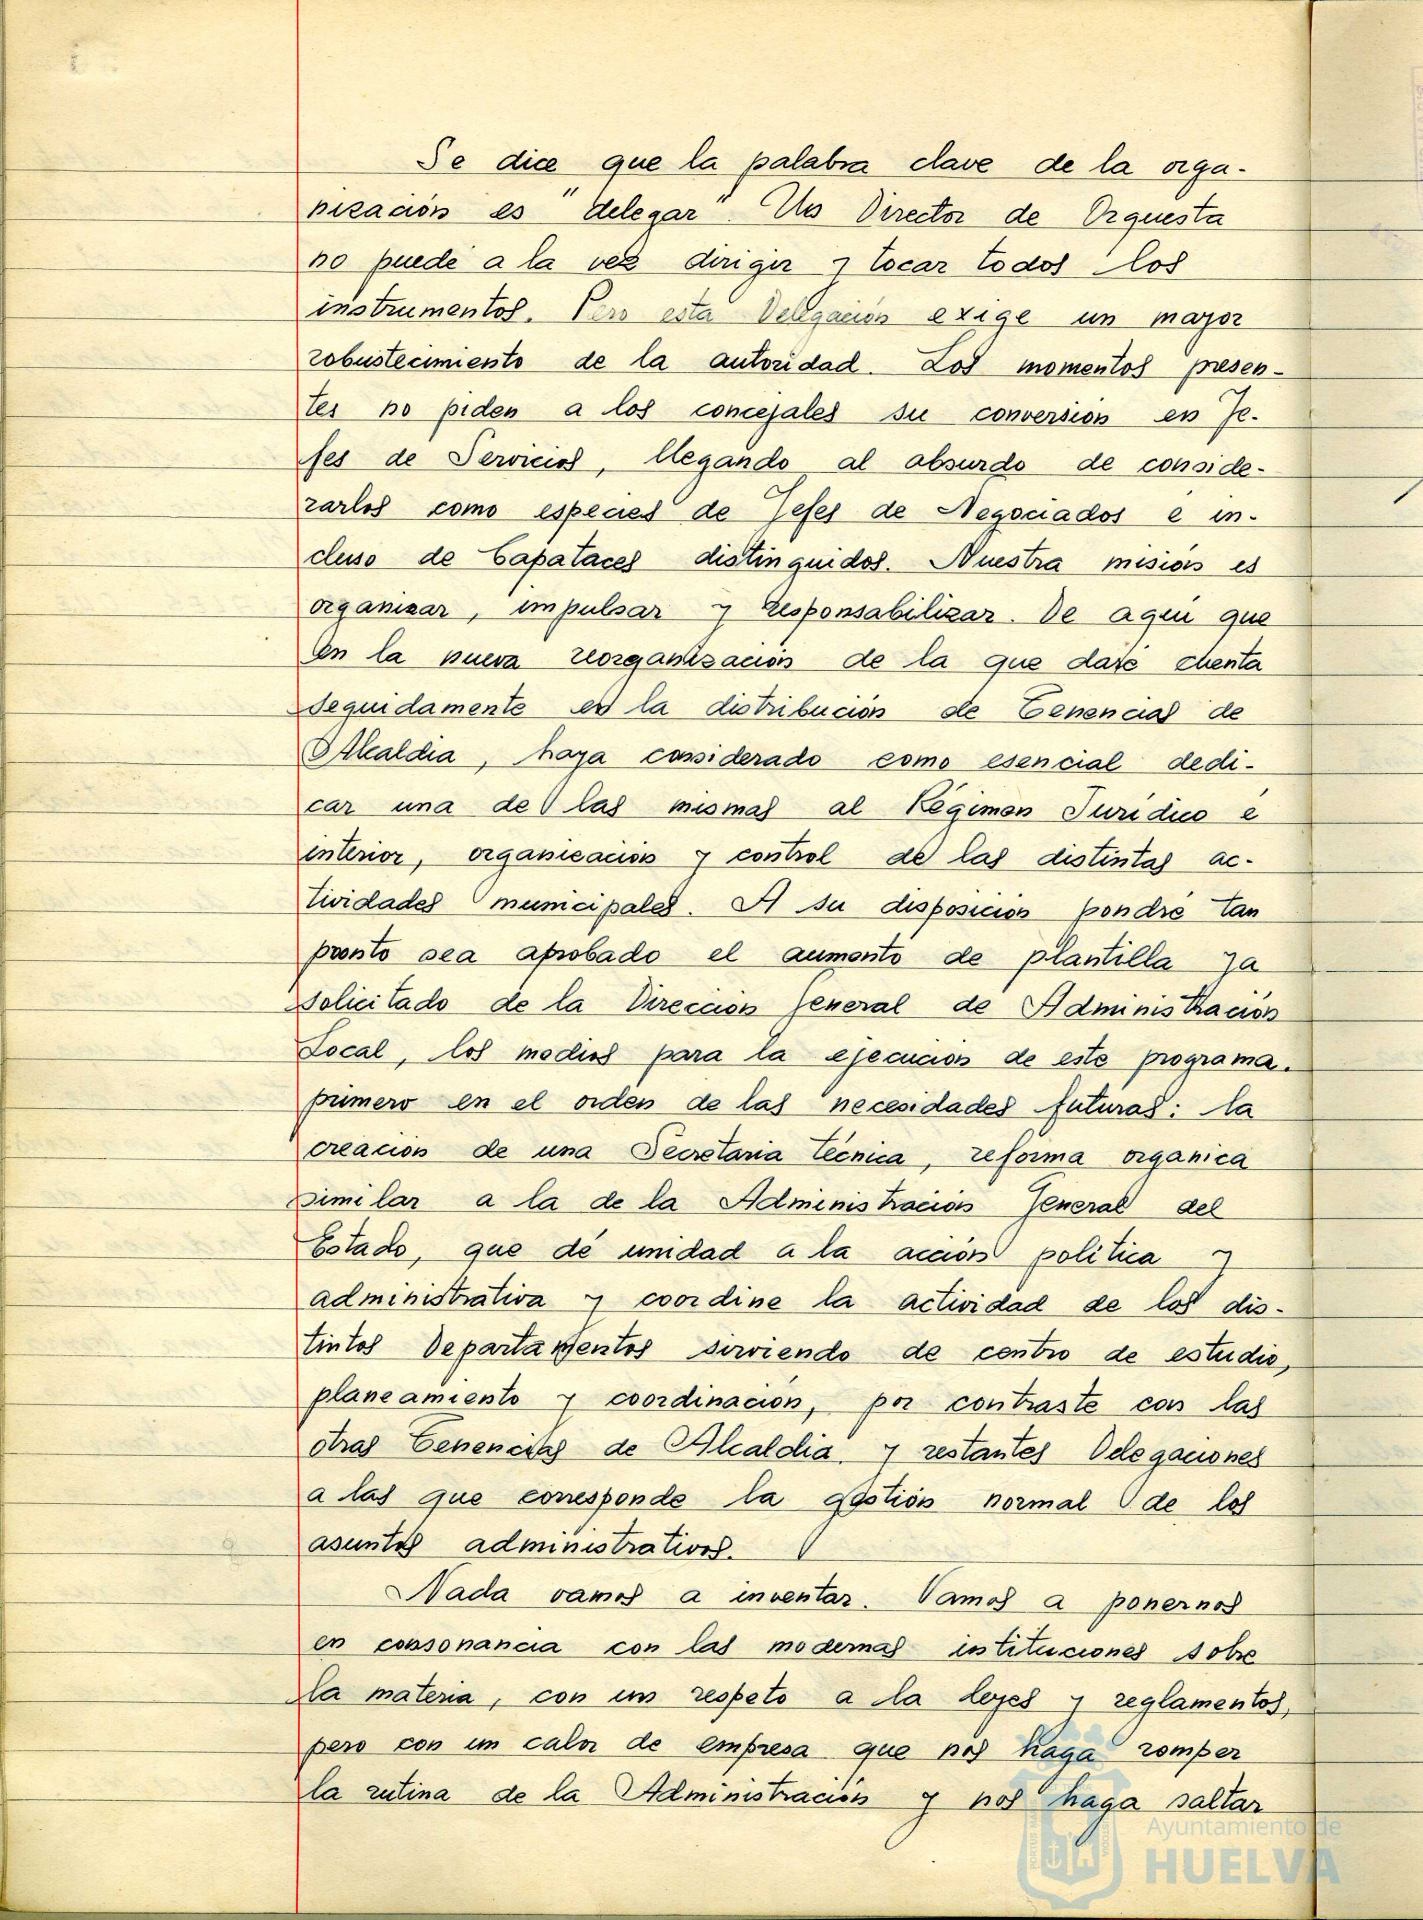 Se dice que la palabra clave de la orga-
nización es "delegar". Un Director de Orquesta
no puede a la vez dirigir y tocar todos los
instrumentos. Pero esta Delegación exige un mayor
robustecimiento de la autoridad. Los momentos presen-
tes no piden a los concejales su conversión en Je-
fes de Servicios, llegando al absurdo de conside-
rarlos como especies de Jefes de Negociados e in-
cluso de Capataces distinguidos. Nuestra misión es
organizar, impulsar y responsabilizar. De aquí que
en la nueva reorganización de la que daré cuenta
seguidamente en la distribución de Tenencias de
Alcaldia, haya considerado como esencial dedi-
car una de las mismas al Régimen Jurídico é
interior, organización y control de las distintas ac-
tividades municipales. A su disposición pondré tan
pronto sea aprobado el aumento de plantilla ya
solicitado de la Dirección General de Administración
Local, los medios para la ejecución de este programa.
primero en el orden de las necesidades futuras: la
creación de una Secretaria Técnica, reforma organica
similar a la de la Administración General del
Estado, que dé unidad a la acción politica y
administrativa y coordine la actividad de los dis-
tintos Departamentos sirviendo de centro de estudio,
planeamiento y coordinación, por contraste con las
otras Tenencias de Alcaldia y restantes Delegaciones
a las que corresponde la gestión normal de los
asuntos administrativos.
Nada vamos a inventar. Vamos a ponernos
en consonancia con las modernas instituciones sobre
la materia, con un respeto a la leyes y reglamentos,
pero con un calor de empresa que nos haga romper
la rutina de la Administración y nos haga saltar
Ayuntamiento de
HUELVA